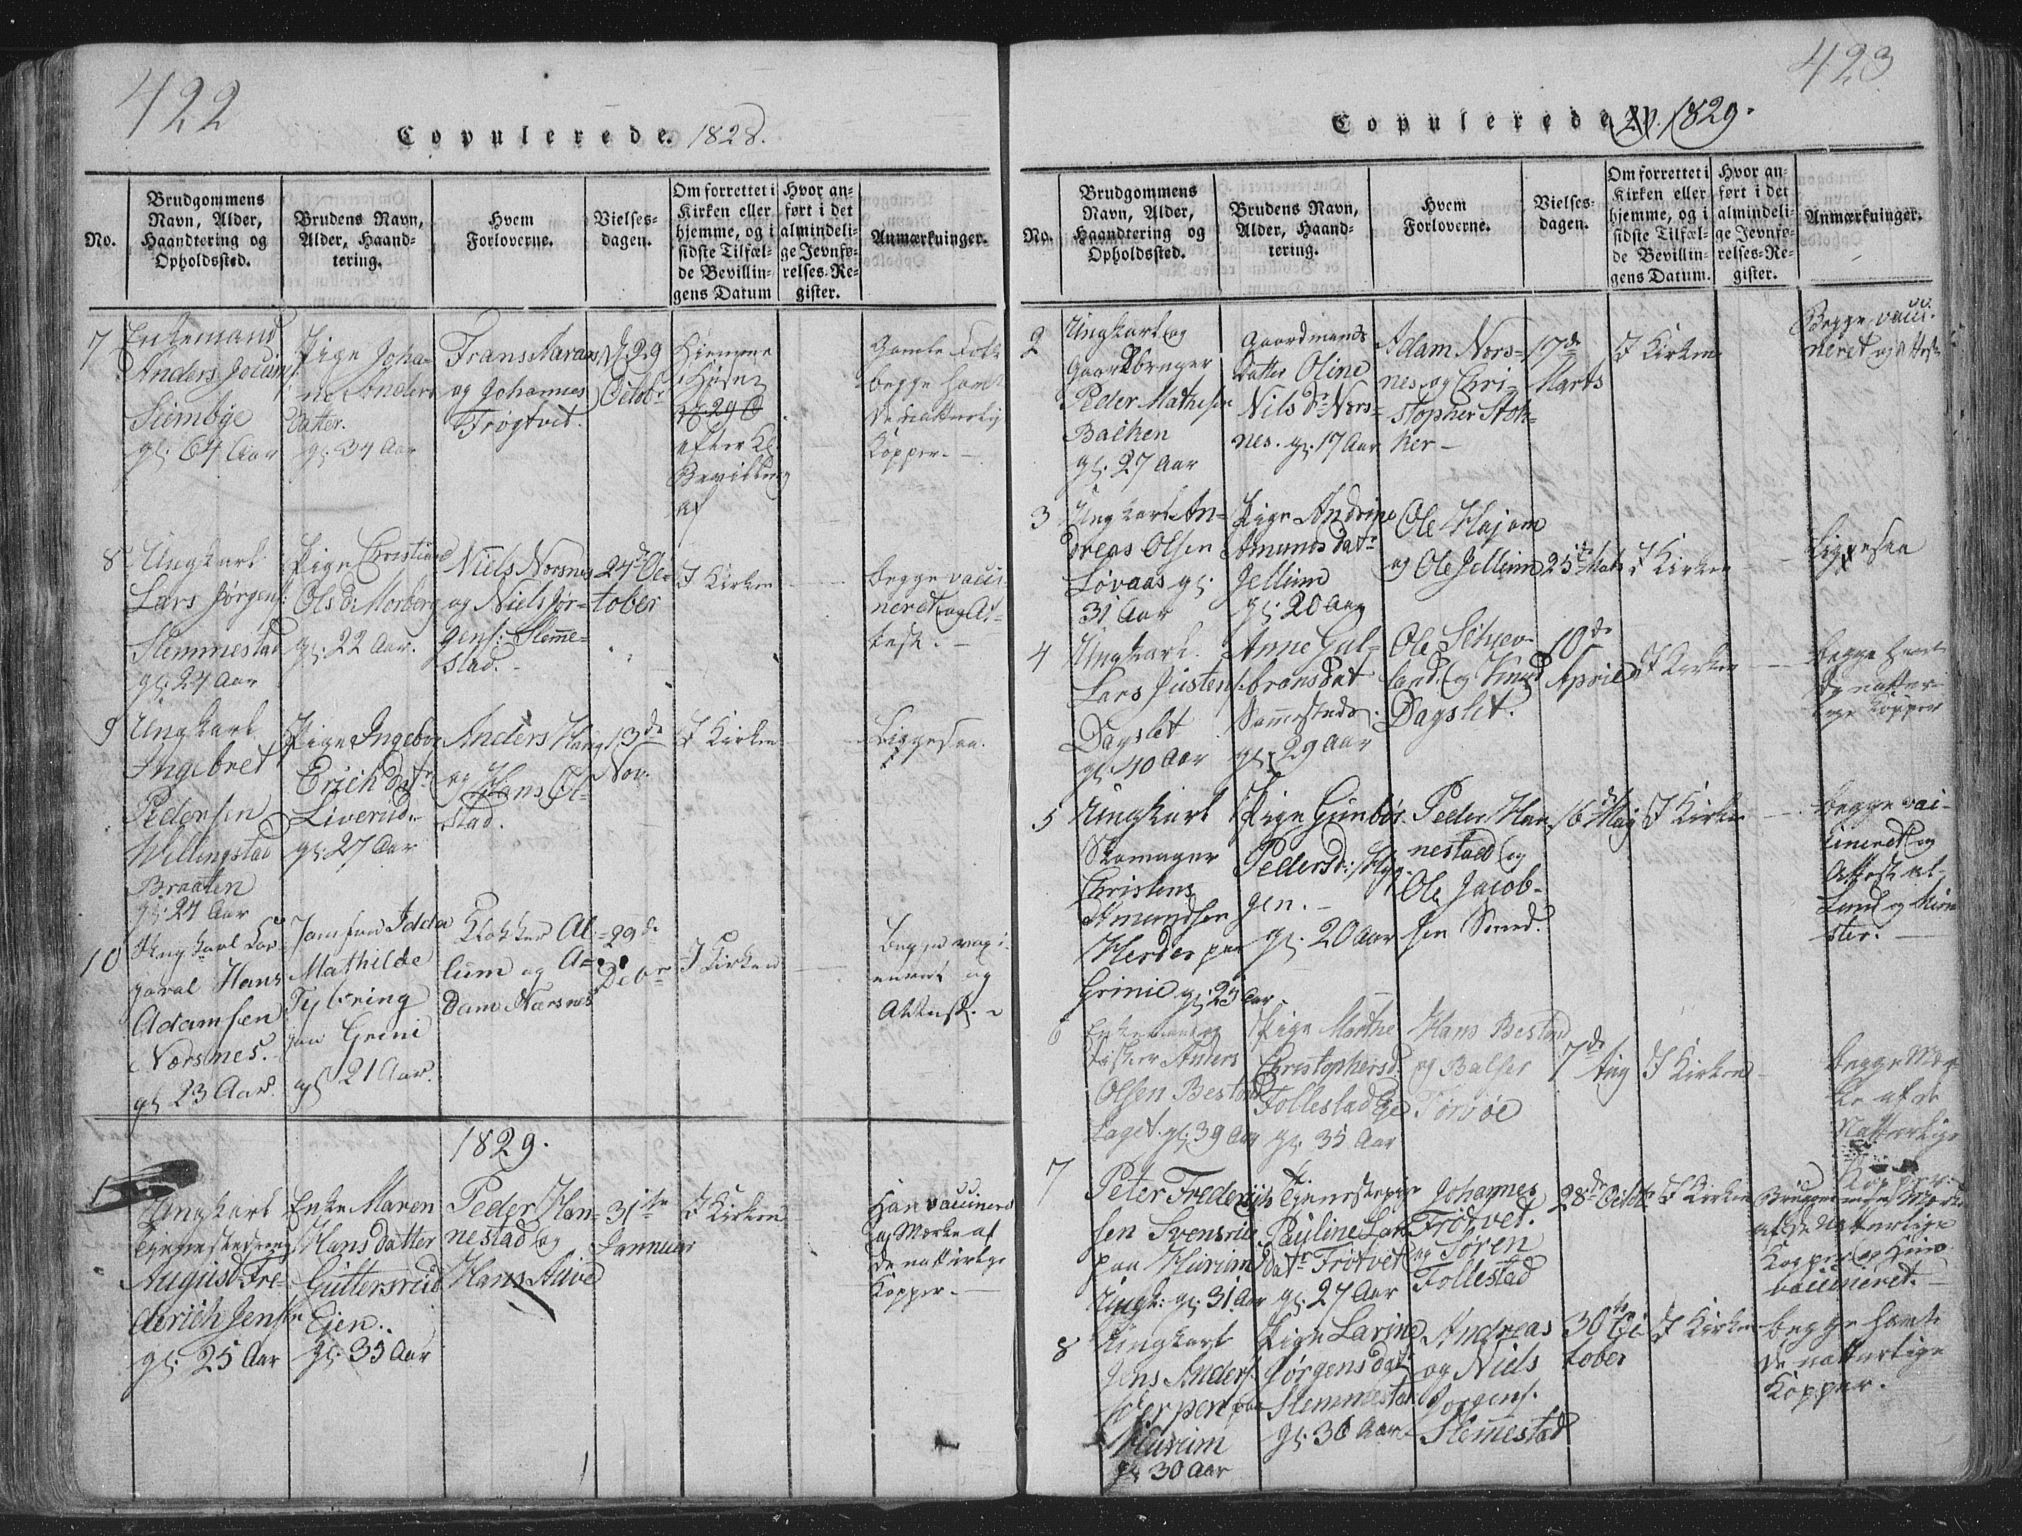 422
Copulerede. 1828.
No.
Brudgommens Navn, Alder, Haandtering og Opholdssted.
Brudens Navn, Alder, Haandtering.
Hvem Forloverne.
Vielsesdagen.
Om forrettet i Kirken eller hjemme, og i sidste Tilfælde Bevillingens Datum
Hvor anført i det almindelige Jevnførelses-Register.
Anmærkninger.
7
Enkemand
Anders
Seimbye
gl: 64 Aar
Pige Johanne Anders
Datter.
gl: 34 Aar
Frans
og Johannes
Trøgtvet.
29
Octobr
Hiemme
i Huset
efter
Bevilling
af
Gamle Folk
begge havt
de naturlig
Kopper. —
8
Ungkarl
Lars Jørgens:
Slemmestad
gl: 24 Aar
Pige Christiane
Ols D: Morberg
gl: 22 Aar.
Niels Nærsnes
og Niels Jør-
gens: Slemme-
stad.
24de Oc-
tober
I Kirken
begge vacci-
neret og At-
test. —
9
Ungkarl
Ingebret
Pedersen
Willingstad
Braaten
gl: 24 Aar
Pige Ingebor
Erich datr
Liverud
gl: 27 Aar
Anders Haug
og Hans Øl-
stad.
13de
Nov.
I Kirken
Liggesaa.
10
Ungkarl Cor-
poral Hans
Adamsen
Nærsnes.
gl 23 Aar.
Jomfrue Idda
Mathilde
Tybring
paa Grini
gl 21 Aar.
Klokker Al-
lum og A-
dam Nærsnes
29de
Decbr
I Kirken
Begge vaxi-
neret og
Attest.
1829.
1
Ungkarl
Tjenestedreng
August Fre-
derich Jensen
gl: 25 Aar
Enke Maren
Hansdatter
Guttersrud
Ejen.
gl: 35 Aar
Peder Han-
nestad og
Hans Auve
31te
Januar
I Kirken
Han vaccineret
og Mærke af
de naturlige
Kopper. —
423
Copulerede 1829.
No.
Brudgommens Navn, Alder, Haandtering og Opholdssted.
Brudens Navn, Alder, Haandtering.
Hvem Forloverne.
Vielsesdagen.
Om forrettet i Kirken eller hjemme, og i sidste Tilfælde Bevillingens Datum.
Hvor anført i det almindelige Jevnførelses-Register.
Anmærkninger.
2
Ungkarl og
Gaardbruger
Peder Mathisen
Bachen
gl: 27 Aar
Gaardmands
Datter Oline
Nils Dr Nærs-
nes. gl: 17 Aar
Adam Nærs-
nes og Chri-
stopher Stok-
ker —
17de
Marts
I Kirken
Begge vacci-
neret og Attest
3
Ungkarl An-
dreas Olsen
Løvaas gl:
31 Aar
Pige Andrine
Amunds datr
Jellum
gl: 20 Aar
Ole Hajom
og Ole Jellum
25de Mats
I Kirken
Liggesaa
4
Ungkarl.
Lars Justens:
Dagslet
gl: 40 Aar
Anne Gul-
bransdat
Sammesteds.
gl: 29 Aar
Ole Schiev-
land og Knud
Dagslet.
10de
April
I Kirken
begge havt
de naturlige
Kopper
5
Ungkarl
Skomager
Christens
Amundsen
Herder paa
Grinie gl: 23 Aar
Pige Gunbør
Pedersd: Hyg-
gen. —
gl: 20 Aar
Peder Han-
nestad og
Ole Jacob-
sen Sund.
16de May
I Kirken
begge vac-
cineret og
Attest
6
Enkemand og
Fisker Anders
Olsen Bestad
Laget. gl: 39 Aar
Pige Marthe
Christophersd.
Follestad Eje
gl: 35 Aar
Hans Bestad
og Balser
Torvøe
7de
Aug
I Kirken
begge Mær-
ke af de
Natturlige
Kopper.
7
Peter Frederiich-
sen Svensrud
paa Hurum
Ungk: gl: 31 Aar
Tjenestepige
Pauline Lars
datr Trøtvet
gl: 27 Aar
Johannes
Trødvet.
og Søren
Follestad
28de Octbr
I Kirken
Brudgommen Mærke
af de Naturlige
Kopper og Hun
vaccineret. —
8
Ungkarl
Jens Anders:
paa
Hurum
gl 30 Aar
Pige Larine
Jørgens dat
Slemmestad
gl: 36 Aar
Andreas
og Niels
Jorgens:
Slemestad
30te Oc-
tober
I Kirken
begge havt
de naturlige
Kopper.